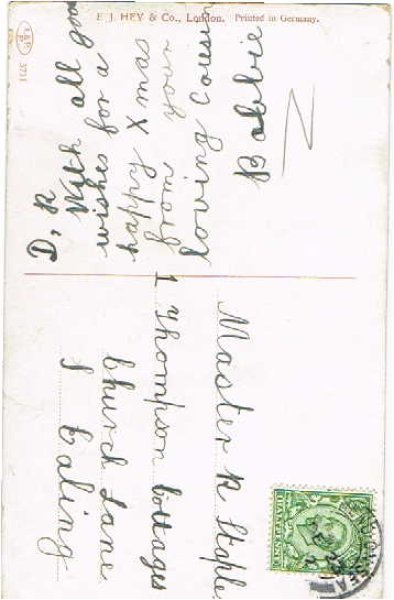 E. J. HEY & Co., London. Printed in Germany.
3711
D. R
With all good
wishes for a
happy Xmas
from your
loving Cousin
Babbie
Master R Staple
1 Thompson Cottages
Church Lane
S Ealing